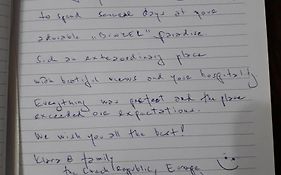 to spend several days at your
adorable "SIAZEL" paradise.
Such an extraordinary place
with beatifil views and your hospitality
Everything was perfect and the place
exceeded our expectations.
We wish you all the best!
& family
the Czech Republic, Europe